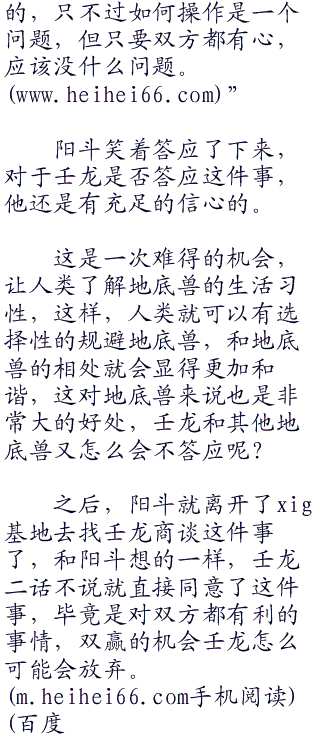 的，只不过如何操作是一个
问题，但只要双方都有心，
应该没什么问题。
(www.heihei66.com)”
阳斗笑着答应了下来，
对于壬龙是否答应这件事，
他还是有充足的信心的。
这是一次难得的机会，
让人类了解地底兽的生活习
性，这样，人类就可以有选
择性的规避地底兽，和地底
兽的相处就会显得更加和
谐，这对地底兽来说也是非
常大的好处，壬龙和其他地
底兽又怎么会不答应呢？
之后，阳斗就离开了xig
基地去找壬龙商谈这件事
了，和阳斗想的一样，壬龙
二话不说就直接同意了这件
事，毕竟是对双方都有利的
事情，双赢的机会壬龙怎么
可能会放弃。
(m.heihei66.com手机阅读)
(百度